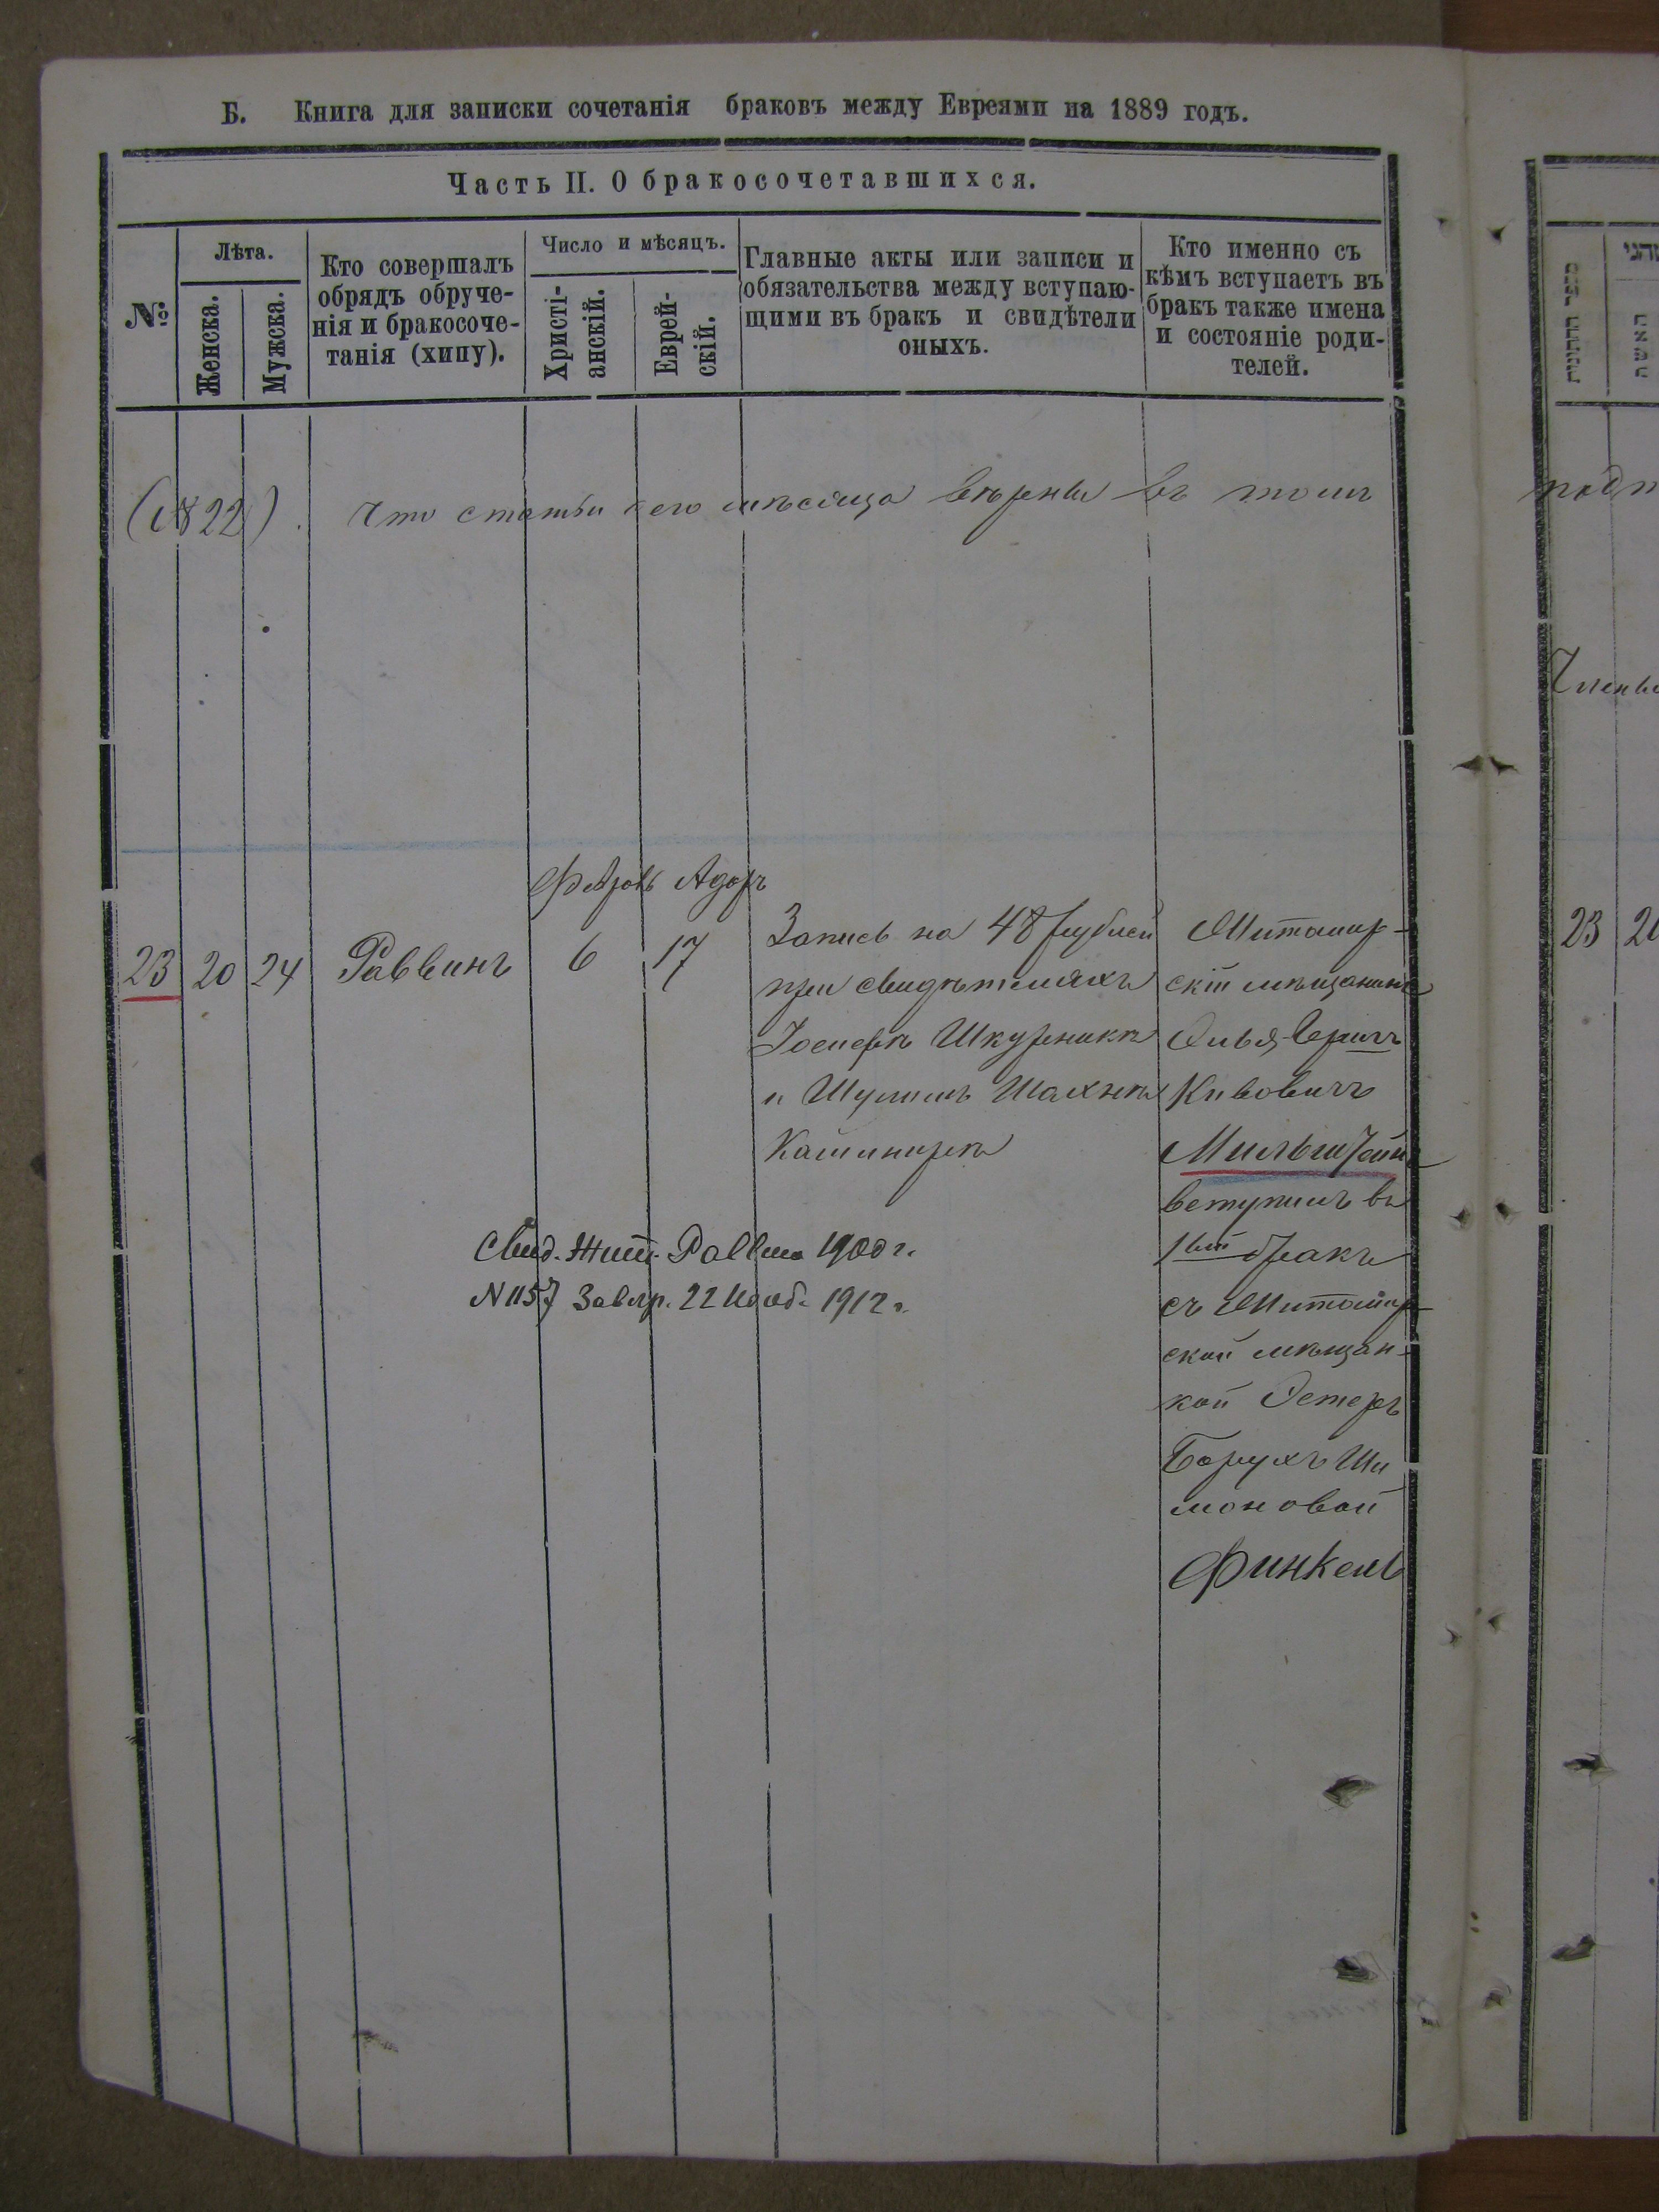 Б. Книга для записки сочетанія браковъ между Евреями на 1889 годъ.
Часть II. О бракосочетавшихся.
№
Лѣта.
Женска.
Мужска.
Кто совершалъ
обрядъ обруче-
нія и бракосоче-
танія (хипу).
Число и мѣсяцъ.
Христі-
анскій.
Еврей-
скій.
Главные акты или записи и
обязательства между вступаю-
щими въ бракъ и свидѣтели
оныхъ.
Кто именно съ
кѣмъ вступаетъ въ
бракъ также имена
и состояніе роди-
телей.
(№ 22). Что статьи сего мѣсяца вѣрны въ томъ
Февраль Адаръ
23 20 24 Раввинъ 6 17
Запись на 48 рублей
при свидѣтеляхъ
Іосифѣ Шкурникѣ
и Шулимъ Шахнѣ
Кашинирѣ
Житомир-
скій мѣщанинъ
Кивовичъ
Мильштейнъ
вступилъ въ
1ый бракъ
съ Житомир-
ской мѣщан-
кой Эстеръ
Борухъ Ши
моновой
Финкель
Свид. Жит. Раввина 1900 г.
N 1157 Завѣр. 22 Нояб. 1912 г.
מספר החתונות
האשה
23